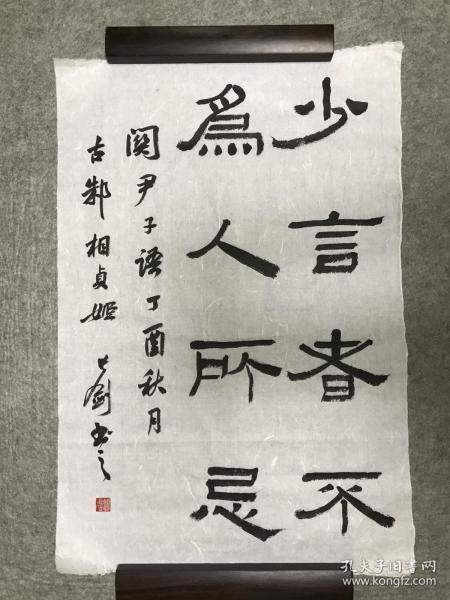 少言者不
為人所忌
関尹子語丁酉秋月
古鄴相貞姬
書之
孔夫子旧书网
www.kongfz.com